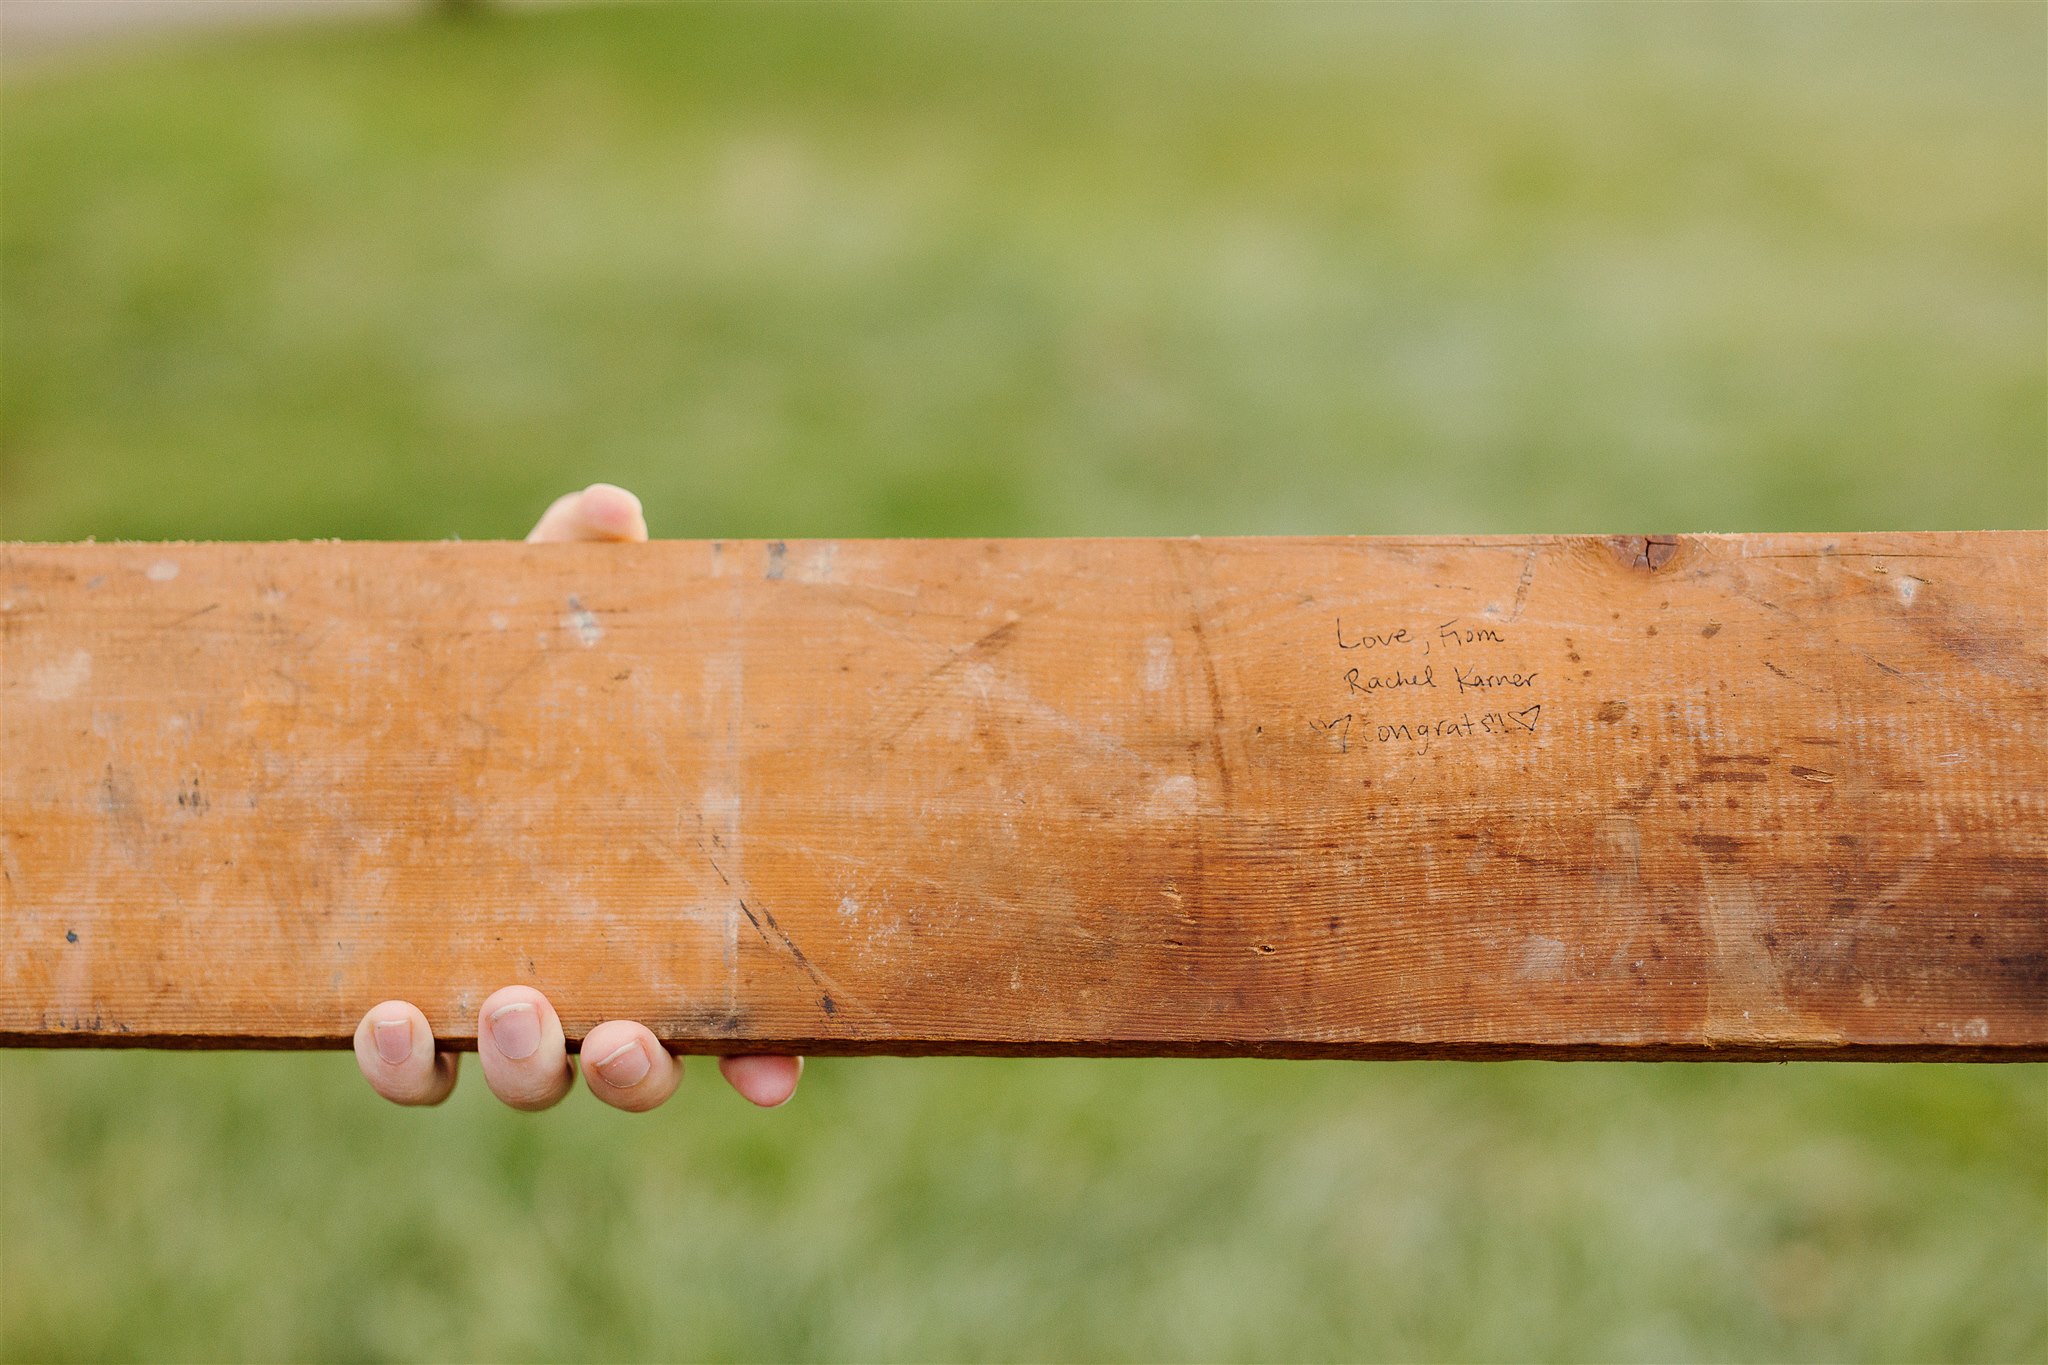 Love, From
Rachel Karner
Congrats!! ♡